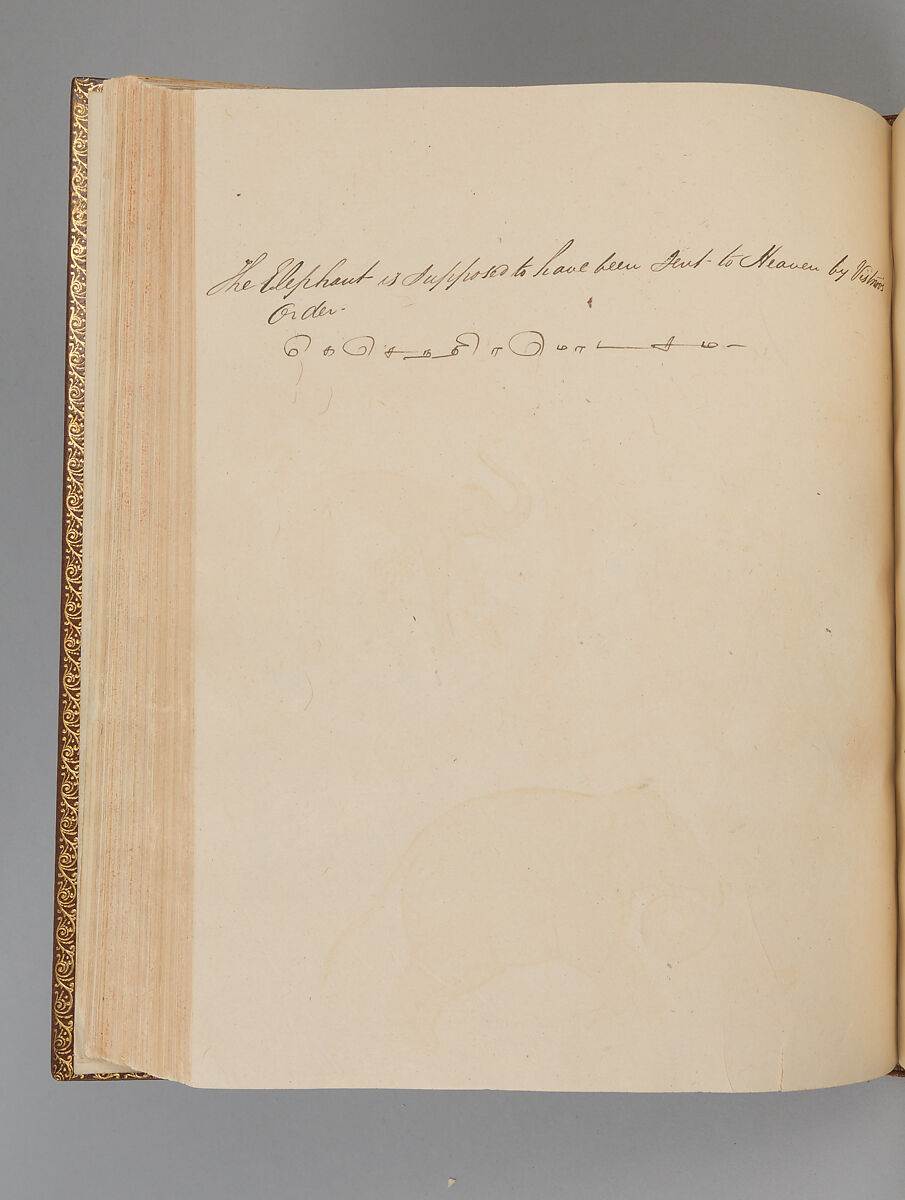 The Elephant is Supposed to have been Sent to Heaven by
Order.
கெசெநதிரமொடசம